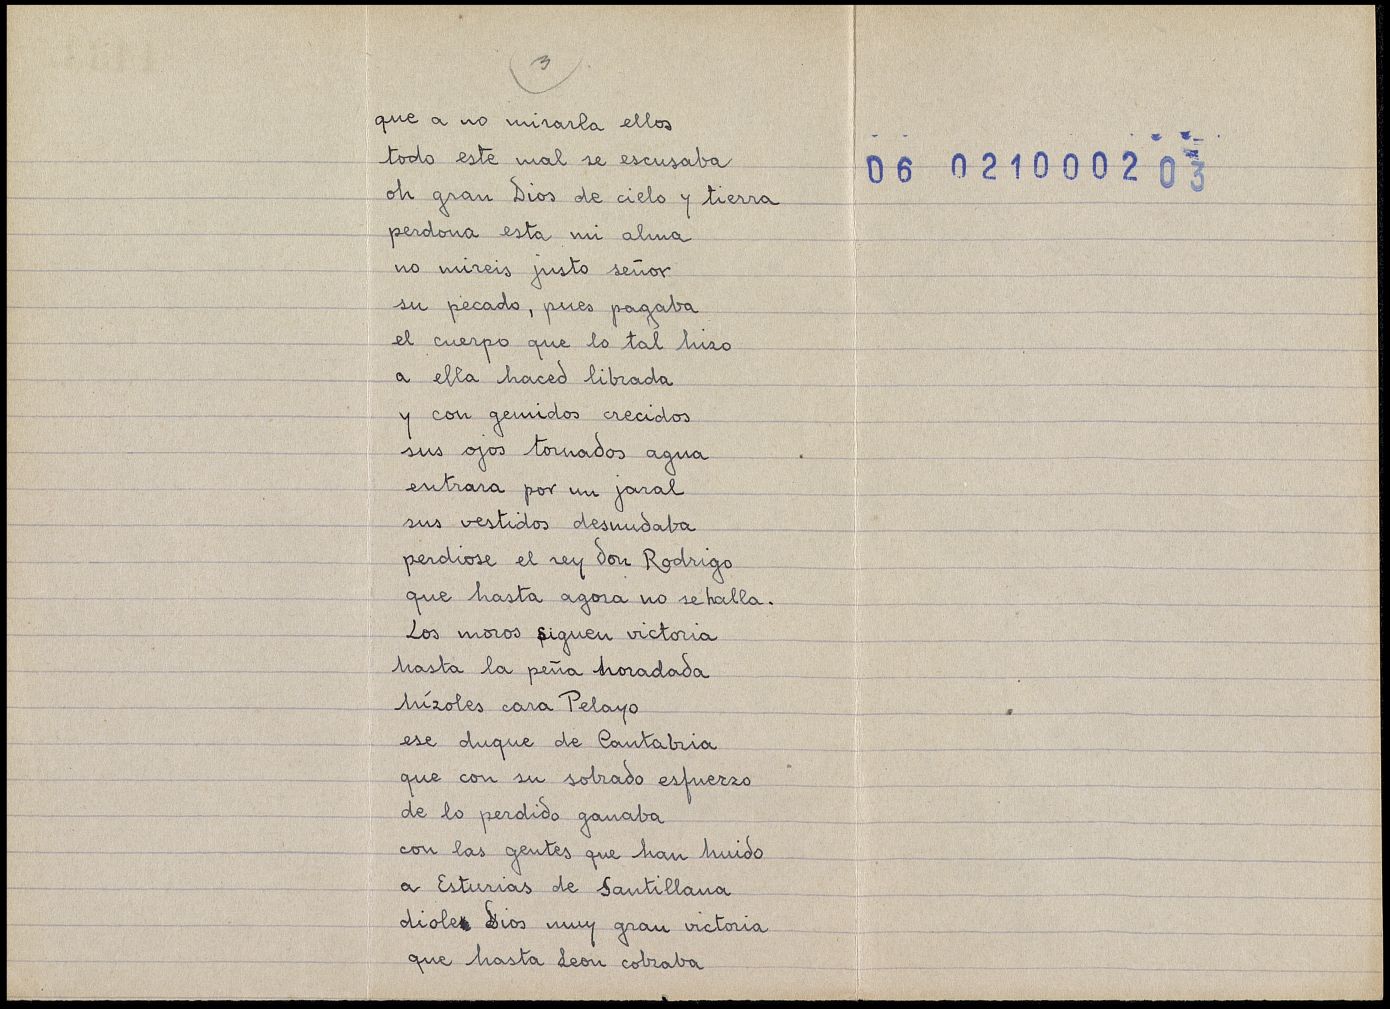 3
que a no mirarla ellos
todo este mal se escusaba
06 0210002 03
oh gran Dios de cielo y tierra
perdona esta mi alma
no mireis justo señor
su pecado, pues pagaba
el cuerpo que lo tal hizo
a ella haced librada
y con gemidos crecidos
sus ojos tornados agua
entrara por un jaral
sus vestidos desnudaba
perdiose el rey don Rodrigo
que hasta agora no se halla.
Los moros siguen victoria
hasta la peña horadada
hízoles cara Pelayo
ese duque de Cantabria
que con su sobrado esfuerzo
de lo perdido ganaba
con las gentes que han huido
a Esturias de Santillana
diole Dios muy gran victoria
que hasta Leon cobraba